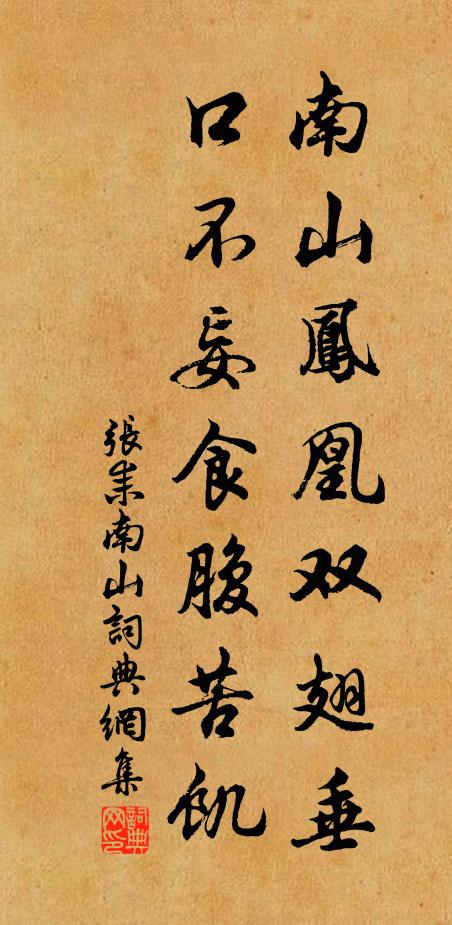 南山鳳凰双翅垂
口不妄食腹苦飢
張耒南山詞典網集
詞典网印